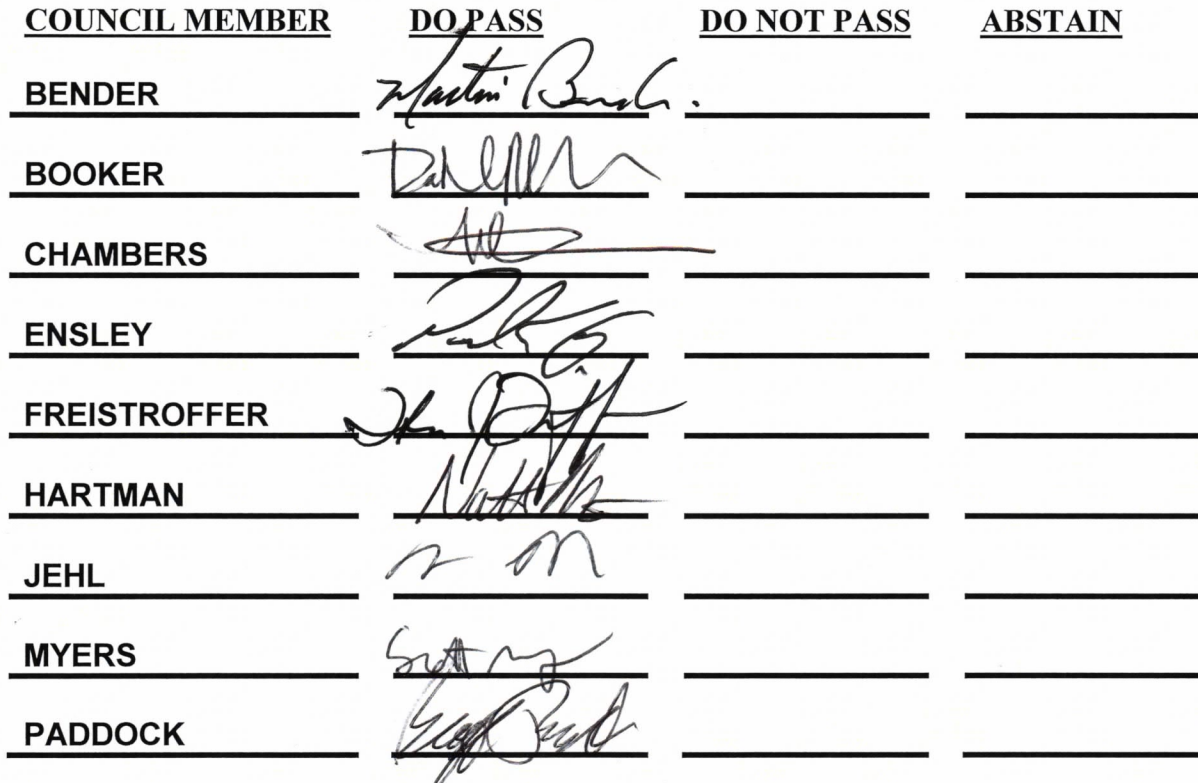 COUNCIL MEMBER DO PASS DO NOT PASS ABSTAIN
BENDER Martin Bender
BOOKER
CHAMBERS
ENSLEY
FREISTROFFER
HARTMAN
JEHL
MYERS Scott
PADDOCK